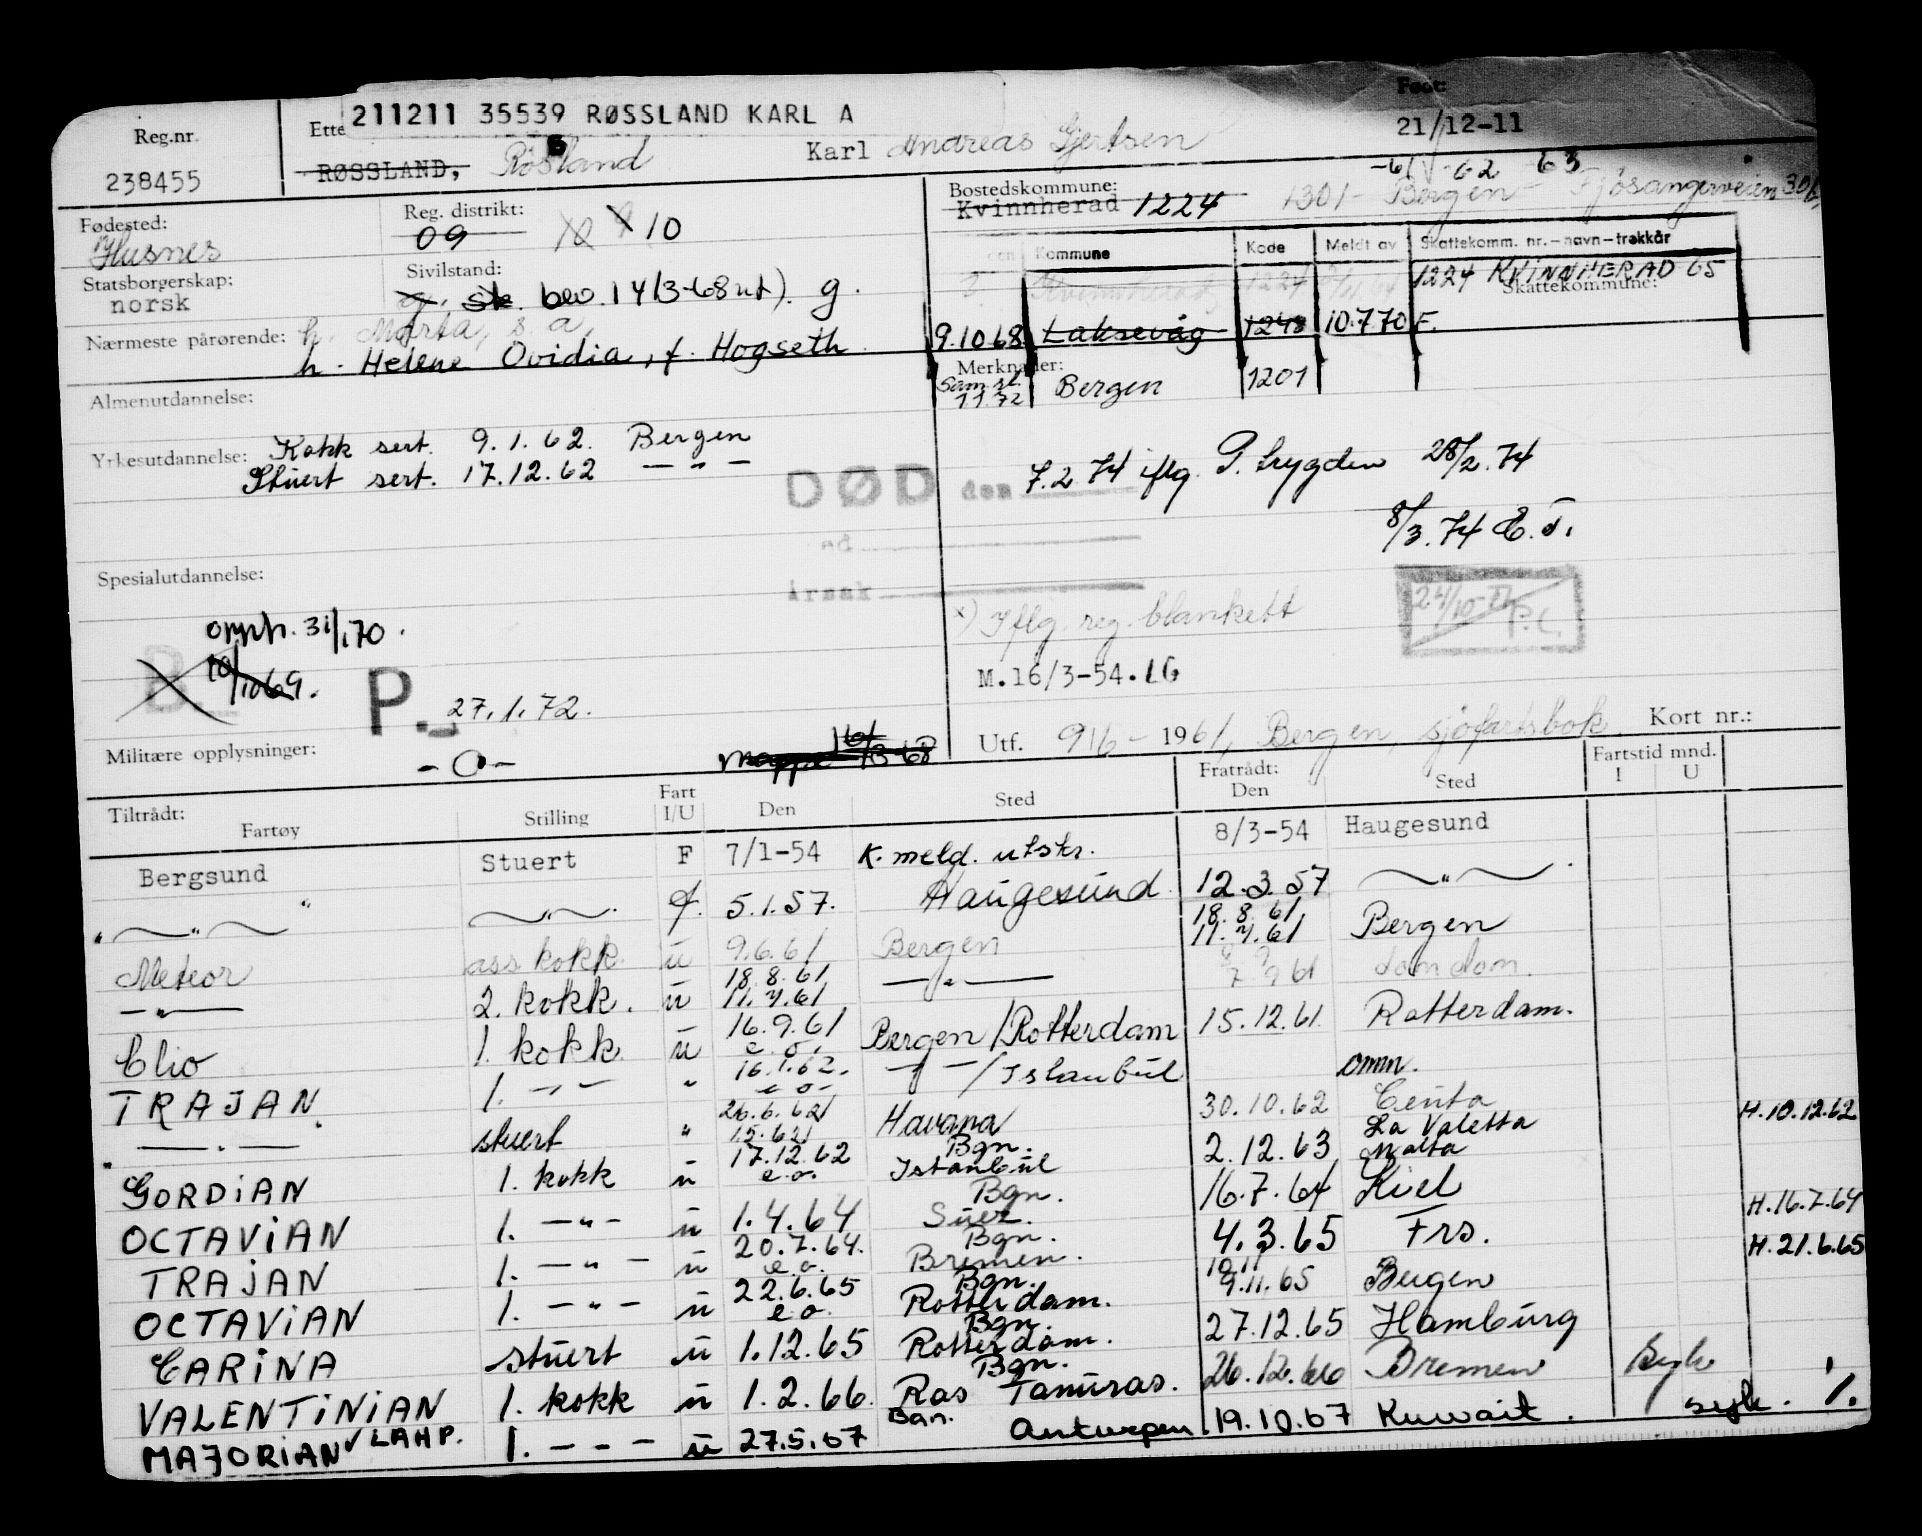 211211 35539 RØSSLAND KARL A
Reg.nr. 238455
Født: 21/12-11
RØSSLAND, Røsland Karl Andreas Gjertsen
-61 -62 -63
Fødested: Husnes
Reg. distrikt: 09 10
Bostedskommune: Kvinnherad 1224 1301 - Bergen - Fjøsangerveien 30b
Statsborgerskap: norsk
Sivilstand: g. sk. bev. 14/3-68 nt). g.
Kommune Kode Meldt av Skattekomm. nr. - navn - trekkår
Kvinnherad 1224 1224 KVINNHERAD 65
Skattekommune:
Nærmeste pårørende: h. Marta, s.a.
h. Helene Ovidia, f. Hogseth
9.10.68 Laksevåg 1248 10.7.70 F.
Merknader:
Sam.sl. 11.72 Bergen 1201
Almenutdannelse:
Yrkesutdannelse: Kokk sert. 9.1.62. Bergen
Stuert sert. 17.12.62 — " —
DØD den 7.2.74 iflg. P. trygden 28/2.74
8/3.74 E.T.
ed
Årsak
Spesialutdannelse:
x) Iflg. reg. blankett
24/10-
opph. 31/1 70.
B 10/10 69.
P. 27.1.72.
M.16/3-54.IG
Militære opplysninger: -O-
Mappe 16/3-68
Utf. 9/6 - 1961, Bergen, sjøfartsbok. Kort nr.:
Tiltrådt: Fartøy Stilling Fart I/U Den Sted Fratrådt: Den Sted Fartstid mnd. I U
Bergsund Stuert F 7/1-54 K. meld. utskr. 8/3-54 Haugesund
— " — — " — F. 5.1.57. Haugesund 12.3.57 — " —
Meteor ass kokk u 9.6.61 Bergen 18.8.61 11.7.61 Bergen
— " — 2. kokk. u 18.8.61 11.7.61 — " — 7 9 61
Clio 1. kokk u 16.9.61 e.o. Bergen/Rotterdam 15.12.61 Rotterdam.
TRAJAN 1. — " — " 16.1.62. e.o. — " — /Istanbul omm.
— " — stuert " 26.6.62 Havana 30.10.62 Ceuta H.10.12.62
GORDiAN 1. kokk u 17.12.62 e.o. Bgn. Istanbul 2.12.63 La Valetta Malta
OCTAViAN 1. — " — u 1.4.64 Bgn. Suez. 16.7.64 Kiel H.16.7.64
TRAJAN 1. — " — u 20.7.64. e.o. Bgn. Bremen. 4.3.65 Frs. H.21.6.65
OCTAViAN 1. — " — u 22.6.65 e.o. Bgn. Rotterdam. 10.11 9.11.65 Bergen
CARiNA stuert u 1.12.65 Bgn. Rotterdam. 27.12.65 Hamburg
VALENTiNiAN 1. kokk u 1.2.66. Bgn. Ras Tanuras. 26.12.66 Bremen Syk
MAJORiAN LAHP. 1. — — — u 27.5.67 Bgn. Antwerpen 19.10.67 Kuwait. syk. %.